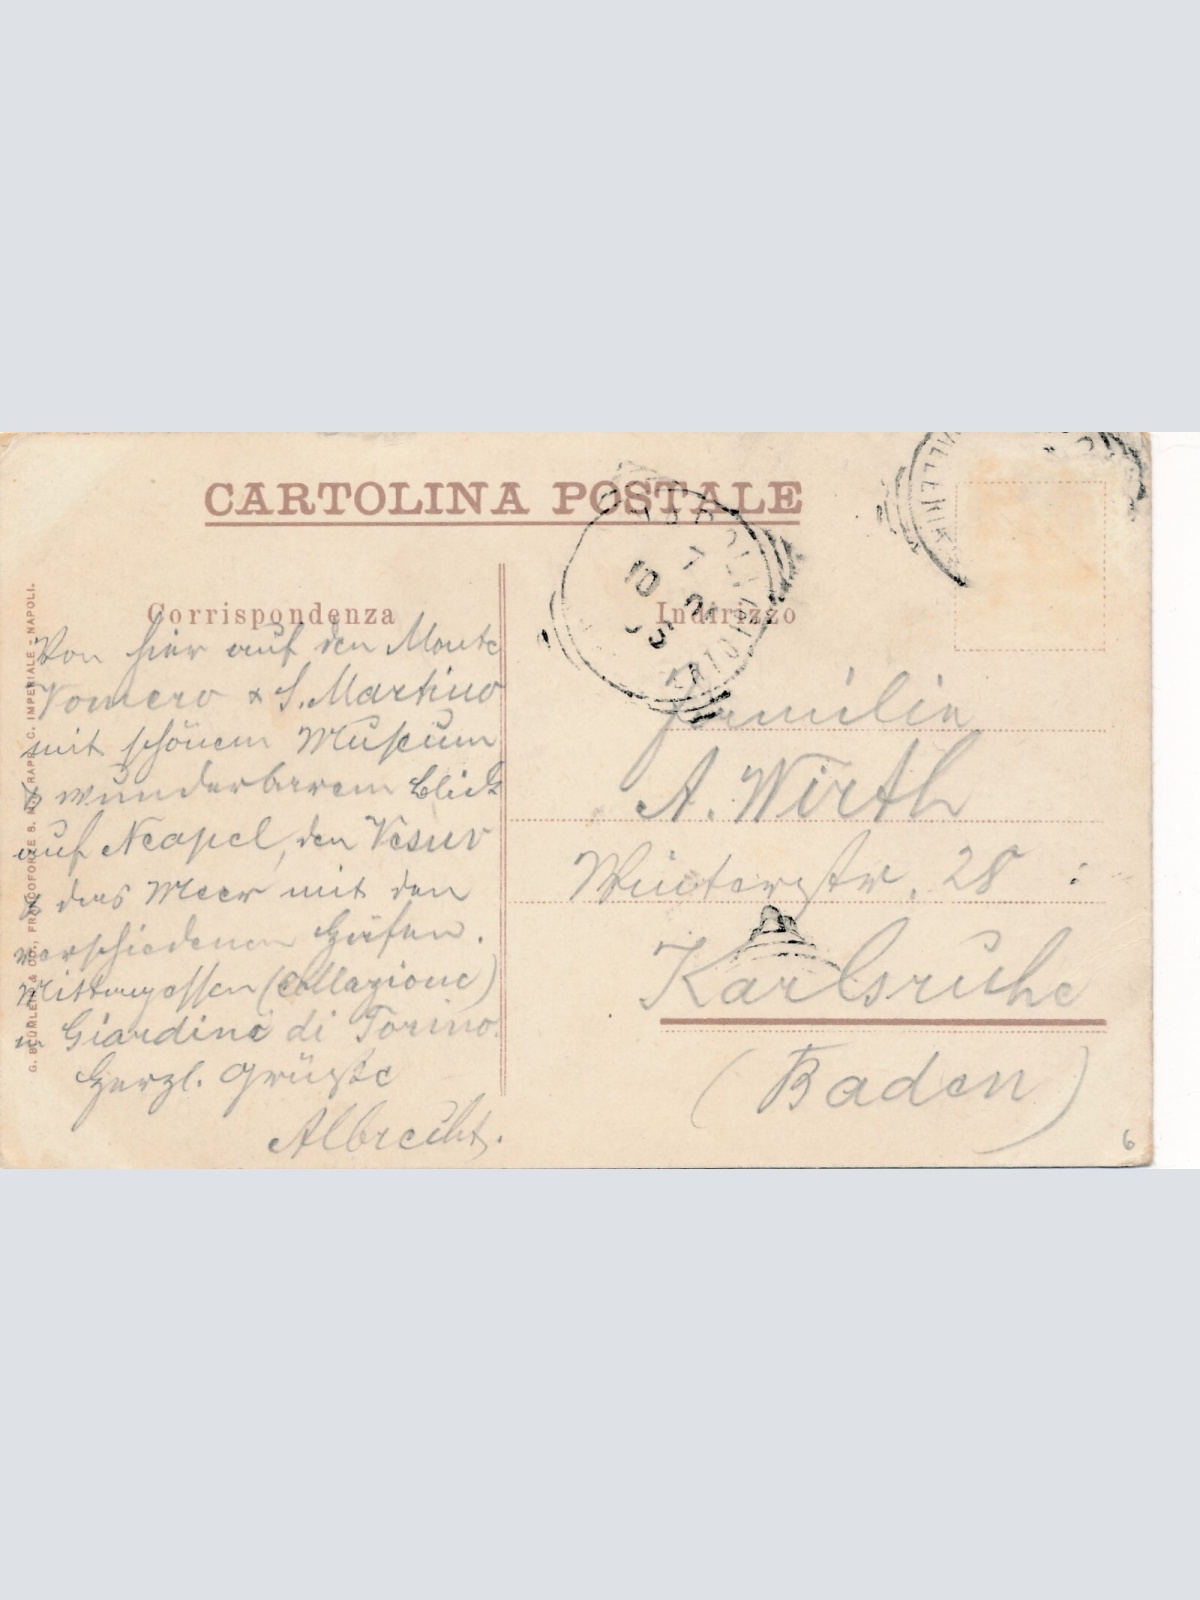 CARTOLINA POSTALE
Corrispondenza
Von hier auf den Monte
Vomero & S. Martino
mit schönem Museum
& wunderbarem Blick
auf Neapel, den Vesuv
& das Meer mit den
verschiedenen Häfen.
Mittagessen (Collazione)
in Giardini di Torino.
Herzl. Grüße
Albrecht.
G. BLÜMLEIN & CO., FRANCOFORTE S. M., RAPP. C. IMPERIALE - NAPOLI.
Indirizzo
Familie
A. Wirth
Winterstr. 28
Karlsruhe
(Baden)
6